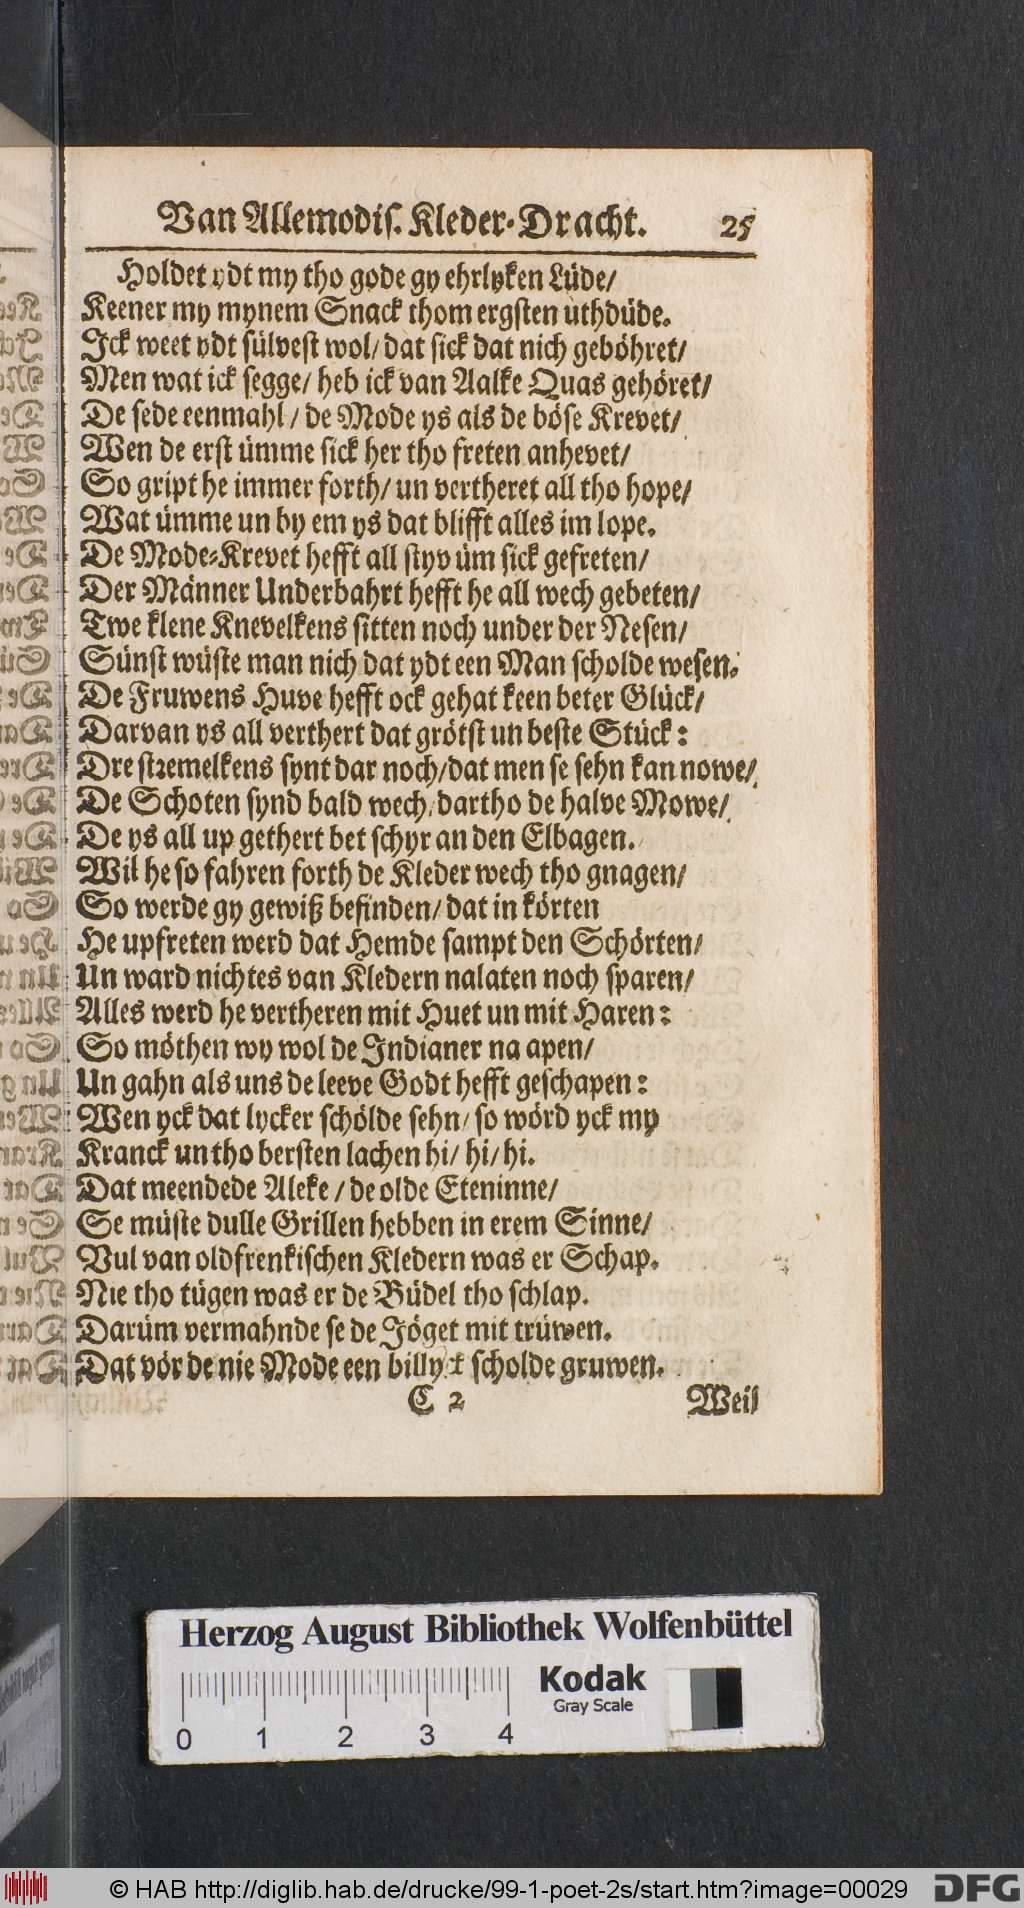 Van Allemodiſ. Kleder-Dracht. 25
Holdet ydt my tho gode gy ehrlyken Lüde/
Keener my mynem Snack thom ergſten uthdüde.
Ick weet ydt ſülveſt wol/ dat ſick dat nich geböhret/
Men wat ick ſegge/ heb ick van Aalke Quas gehöret/
De ſede eenmahl/ de Mode ys als de böſe Krevet/
Wen de erſt ümme ſick her tho freten anhevet/
So gript he immer forth/ un vertheret all tho hope/
Wat ümme un by em ys dat blifft alles im lope.
De Mode-Krevet hefft all ſtyv üm ſick gefreten/
Der Männer Underbahrt hefft he all wech gebeten/
Twe klene Knevelkens ſitten noch under der Neſen/
Sünſt wüſte man nich dat ydt een Man ſcholde weſen.
De Fruwens Huve hefft ock gehat keen beter Glück/
Darvan ys all verthert dat grötſt un beſte Stück:
Dre ſtremelkens ſynt dar noch/dat men ſe ſehn kan nowe/
De Schoten ſynd bald wech, dartho de halve Mowe/
De ys all up gethert bet ſchyr an den Elbagen.
Wil he ſo fahren forth de Kleder wech tho gnagen/
So werde gy gewiß befinden/ dat in körten
He upfreten werd dat Hemde ſampt den Schörten/
Un ward nichtes van Kledern nalaten noch ſparen/
Alles werd he vertheren mit Huet un mit Haren:
So möthen wy wol de Indianer na apen/
Un gahn als uns de leeve Godt hefft geſchapen:
Wen yck dat lycker ſchölde ſehn/ ſo wörd yck my
Kranck un tho berſten lachen hi/ hi/ hi.
Dat meendede Aleke/ de olde Eteninne/
Se müſte dulle Grillen hebben in erem Sinne/
Vul van oldfrenkiſchen Kledern was er Schap.
Nie tho tügen was er de Büdel tho ſchlap.
Darüm vermahnde ſe de Jöget mit trüwen.
Dat vör de nie Mode een billyck ſcholde gruwen.
C 2 Weil
Herzog August Bibliothek Wolfenbüttel
Kodak
Gray Scale
0 1 2 3 4
© HAB http://diglib.hab.de/drucke/99-1-poet-2s/start.htm?image=00029
DFG